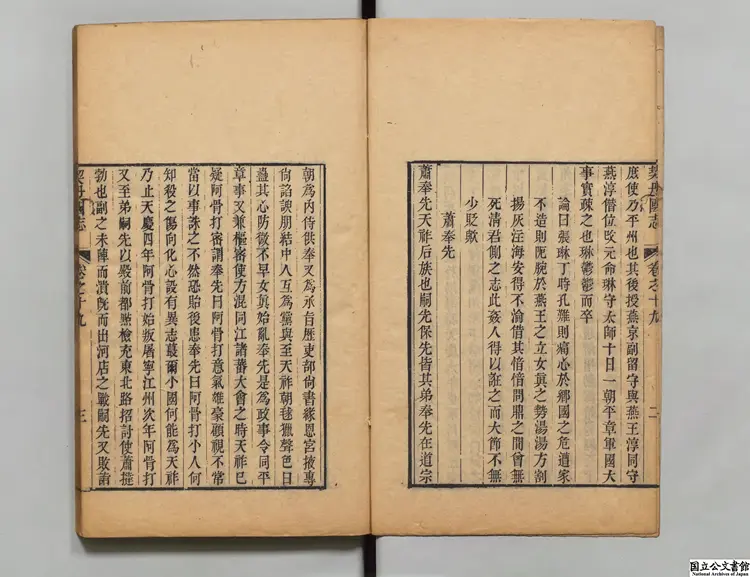 契丹國志 卷之十九 二
底使乃平州也其後授燕京副留守與燕王淳同守
燕淳僭位改元命琳守太師十日一朝平章軍國大
事實疎之也琳鬱鬱而卒
論曰張琳丁時孔難則痛心於鄉國之危遭家
不造則扼腕於燕王之立女眞之勢湯湯方割
揚灰注海安得不淪惜其愔愔問鼎之間曾無
死清君側之志此姦人得以誑之而大節不無
少貶歟
蕭奉先
蕭奉先天祚后族也嗣先保先皆其弟奉先在道宗
朝爲内侍供奉又爲承旨歷吏部尙書緣恩宮掖專
尙諂諛朋結中人互爲黨與至天祚朝毬獵聲色日
蠱其心防微不早女眞始亂奉先是爲政事令同平
章事又兼樞密使方混同江諸蕃大會之時天祚已
疑阿骨打密謂奉先曰阿骨打意氣雄豪顧視不常
當以事誅之不然恐貽後患奉先曰阿骨打小人何
知殺之傷向化心設有異志蕞爾小國何能爲天祚
乃止天慶四年阿骨打始叛屠寧江州次年阿骨打
又至弟嗣先以殿前都㸃檢充東北路招討使蕭撻
勃也副之未陣而潰旣而出河店之戰嗣先又敗請
契丹國志 卷之十九 三
国立公文書館
National Archives of Japan